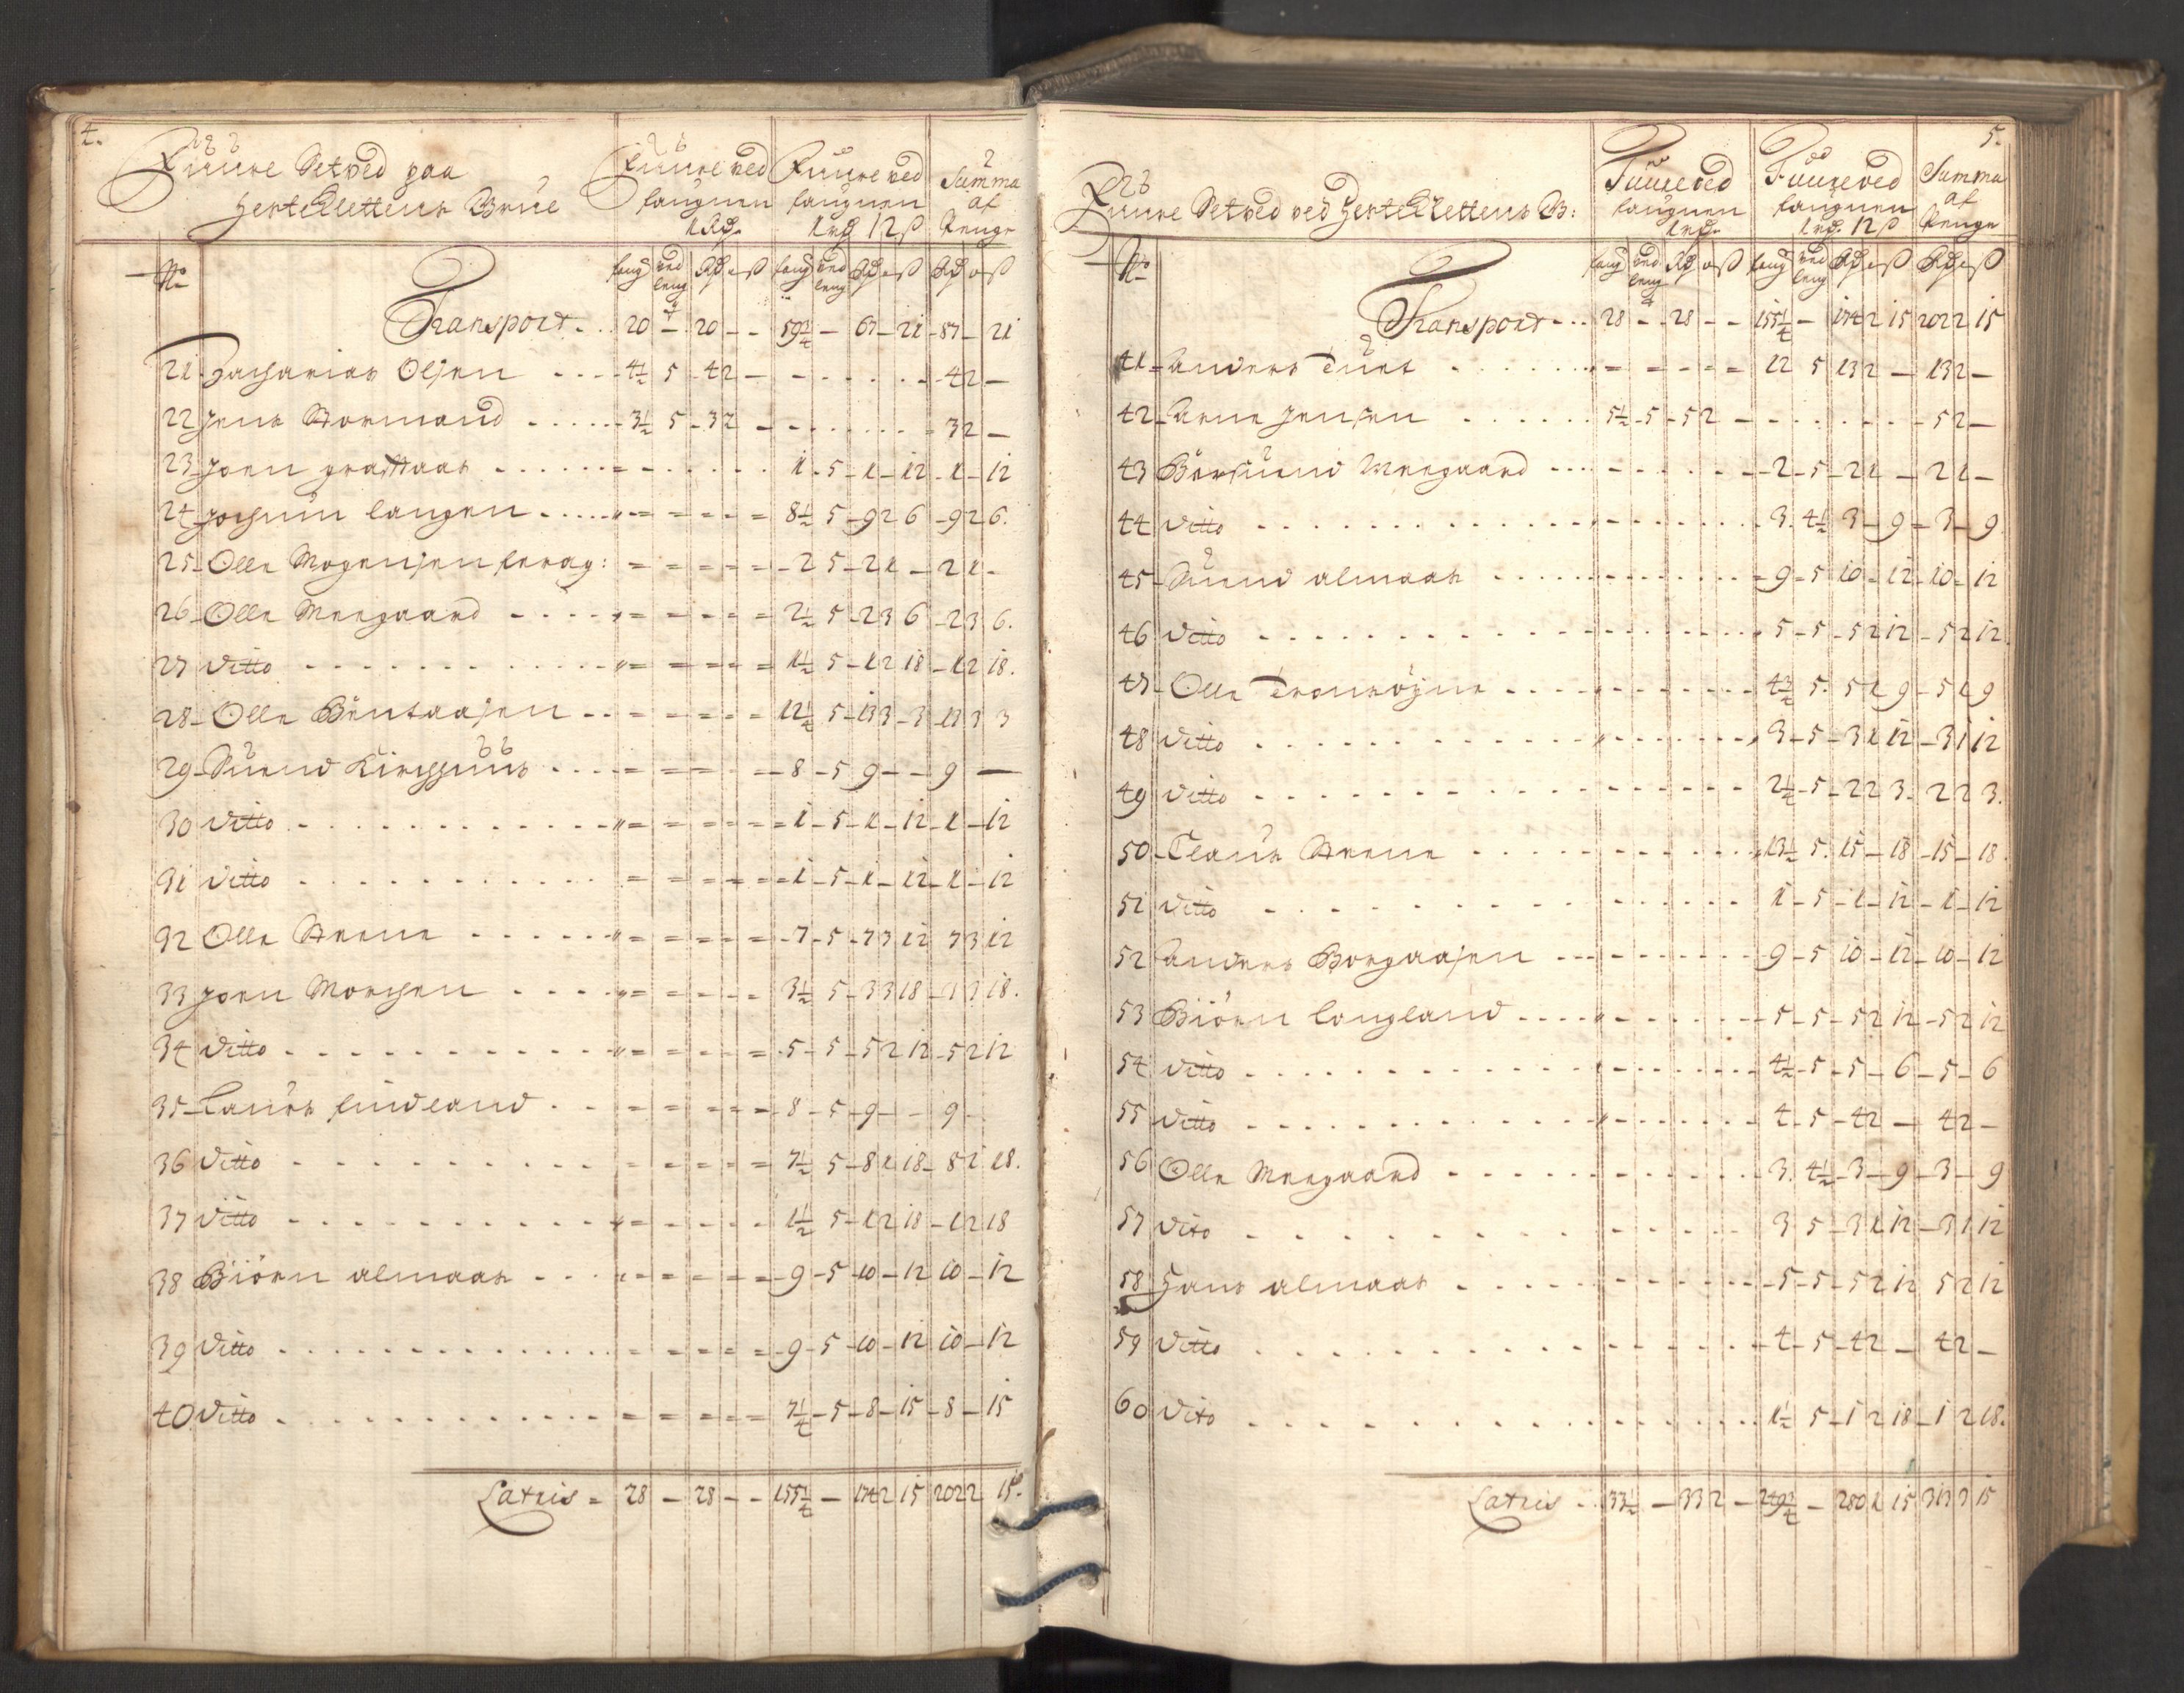 4.
Fuure Setved paa
HerteKlettens Brue
Fuure ved
faugnen
1 Rd.
Fuure ved
faugnen
1 rd 12 ß
Summa
af
Penge
No
faug ved leng Rd ort ß faug ved leng Rd ort ß Rd ort ß
Transport . . 20 — 20 — — 59 3/4 — 67 — 21 — 87 — 21
21 Zacharias Olsen . . . . 4 1/2 5 — 4 2 — - - - - - 4 2 —
22 Jens Normand . . . . . 3 1/2 5 — 3 2 — - - - - - 3 2 —
23 Joen . . . . . . 1 — 5 — 1 — 12 — 1 — 12
24 Jochum langen . . . . . 8 1/2 5 — 9 2 6 — 9 2 6.
25 Olle Mogensen = = = = = 2 5 — 2 1 — 2 1 —
26 Olle Meegaard . . . . = = = = 2 1/2 5 — 2 3 6 — 2 3 6.
27 ditto . . . . . . = = = = 1 1/2 5 — 1 2 18 — 1 2 18.
28 Olle Bentaasen . . = = = = 12 1/4 5 — 13 3 — 3 — 13 3 3
29 Suend Kirchhuus . . . . = = = — 8 — 5 9 — — 9 —
30 ditto . . . . . . = = = = 1 — 5 — 1 — 12 — 1 — 12
31 ditto . . . . . . = = = = 1 — 5 — 1 — 12 — 1 — 12
32 Olle Steene . . . . . = = = = 7 — 5 — 7 3 12 7 3 12
33 Joen Morthen . . . . = = = = 3 1/2 5 — 3 3 18 — 3 3 18.
34 ditto . . . . . . = = = = 5 — 5 — 5 2 12 — 5 2 12
35 Laurs findland . . = = = = 8 — 5 — 9 — — 9 —
36 ditto . . . . . . = = = = 7 1/2 5 — 8 1 18 — 8 1 18.
37 ditto . . . . . . = = = = 1 1/2 5 — 1 2 18 — 1 2 18
38 Biörn almaas . . . = = = = 9 — 5 — 10 — 12 10 — 12
39 ditto . . . . . . = = = = 9 — 5 — 10 — 12 10 — 12
40 ditto . . . . . . = = = = 7 1/4 — 5 — 8 — 15 — 8 — 15
Latris = 28 — 28 — — 155 1/4 — 174 2 15 202 2 15.
5.
Fuure Setved ved HerteKlettens B:
Fuure ved
faugnen
1 rd.
Fuure ved
faugnen
1 rd. 12 ß
Summa
af
Penge
No
faug ved leng Rd ort ß faug ved leng Rd ort ß Rd ort ß
Transport . . . 28 — 28 — — 155 1/4 — 174 2 15 202 2 15
41 anders . . . . . . = = = = 12 5 13 2 — 13 2 —
42 Arne Jensen . . . . . . 5 1/2 — 5 — 5 2 — - - - - - 5 2 —
43 Meegaard . . . - - - - - 2 — 5 — 2 1 — 2 1 —
44 ditto . . . . . . - - - - 3. 4 1/2 3 — 9 — 3 — 9
45 Suend almaas . . . . . . - - - - 9 — 5 10 — 12 — 10 — 12
46 ditto . . . . . . - - - - 5 — 5 — 5 2 12 — 5 2 12.
47 Olle . . . . - - - - 4 3/4 5. 5 1 9 — 5 1 9
48 ditto . . . . . . - - - - 3 — 5 — 3 1 12 — 3 1 12
49 ditto . . . . . . - - - - 2 1/4 — 5 — 2 2 3. 2 2 3.
50 Claus Steene . . . . . . - - - - 13 1/2 5. 15 — 18 — 15 — 18.
51 ditto . . . . . . - - - - 1 — 5 — 1 — 12 — 1 — 12
52 anders Borgaasen . . . - - - - 9 — 5 10 — 12 — 10 — 12
53 Biörn langland . . . . - - - - 5 — 5 — 5 2 12 — 5 2 12
54 ditto . . . . . . - - - - 4 1/2 — 5 — 5 — 6 — 5 — 6
55 ditto . . . . . . - - - - 4 — 5 — 4 2 — 4 2 —
56 Olle Meegaard . . . . . . - - - - 3. 4 1/2 — 3 — 9 — 3 — 9
57 dito . . . . . . - - - - 3 5 — 3 1 12 — 3 1 12
58 Hans almaas . . . . . . - - - - 5 — 5 — 5 2 12 5 2 12
59 ditto . . . . . . - - - - 4 — 5 — 4 2 — 4 2 —
60 dito . . . . . . - - - - 1 1/2 5 — 1 2 18 — 1 2 18.
Latris . . 33 1/2 — 33 2 — 249 3/4 — 280 1 15 313 3 15